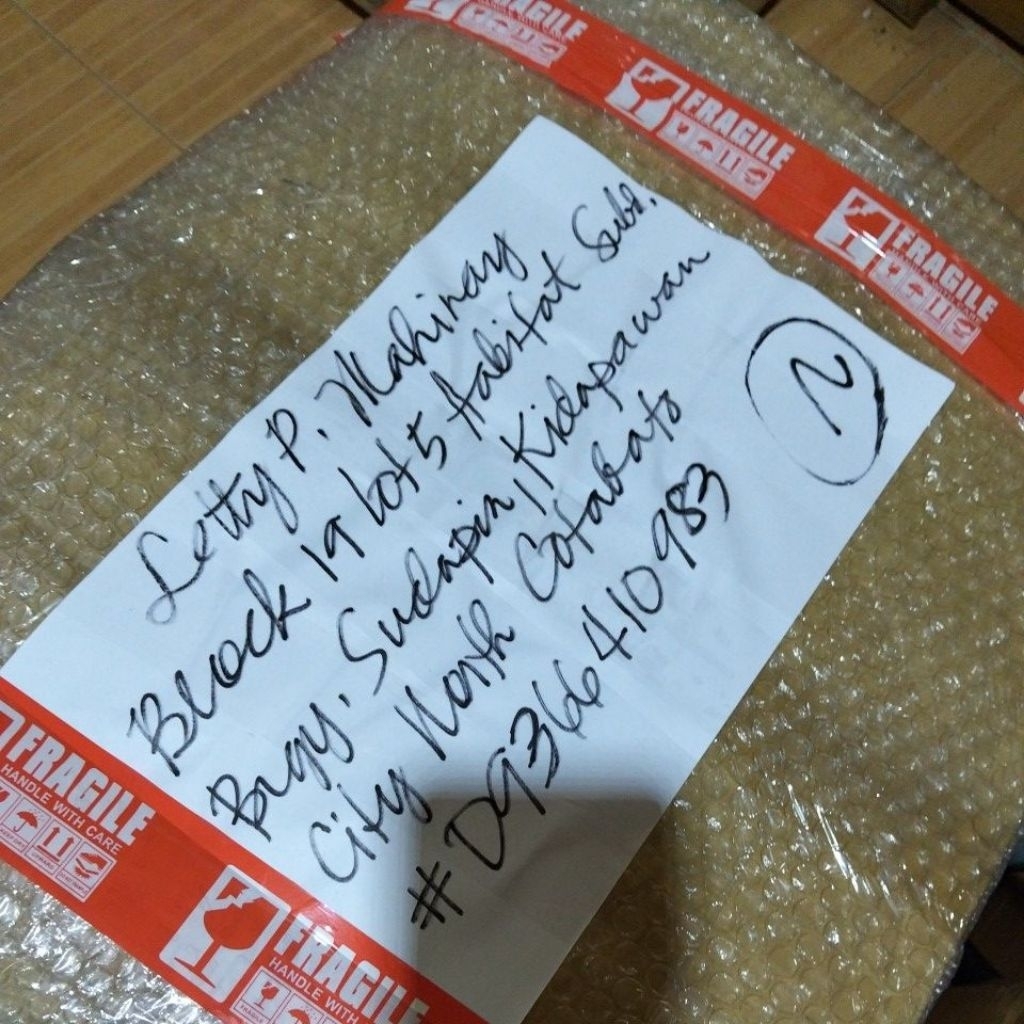 FRAGILE
HANDLE WITH CARE
FRAGILE
FRAGILE
Letty P. Mahinay
Block 19 Lot 5 Habitat Subd.
Brgy. Sudapin, Kidapawan
City North Cotabato
# 09366410983
2
FRAGILE
HANDLE WITH CARE
FRAGILE
HANDLE WITH